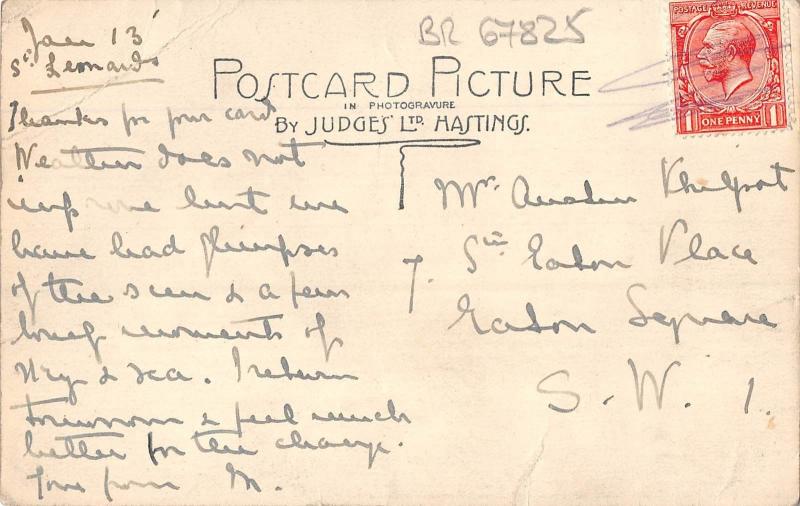 Jan 13
St Leonards
BR 67825
POSTAGE REVENUE
ONE PENNY
1 1
POSTCARD PICTURE
IN PHOTOGRAVURE
BY JUDGES' LTD. HASTINGS.
Thanks for your card
Weather does not
improve but we
have had glimpses
of the sun & a few
lovely moments of
sky & sea. I return
tomorrow & feel much
better for the change.
Love from M.
Mrs Austen
7. Sth Eaton Place
Eaton Square
S. W. 1.